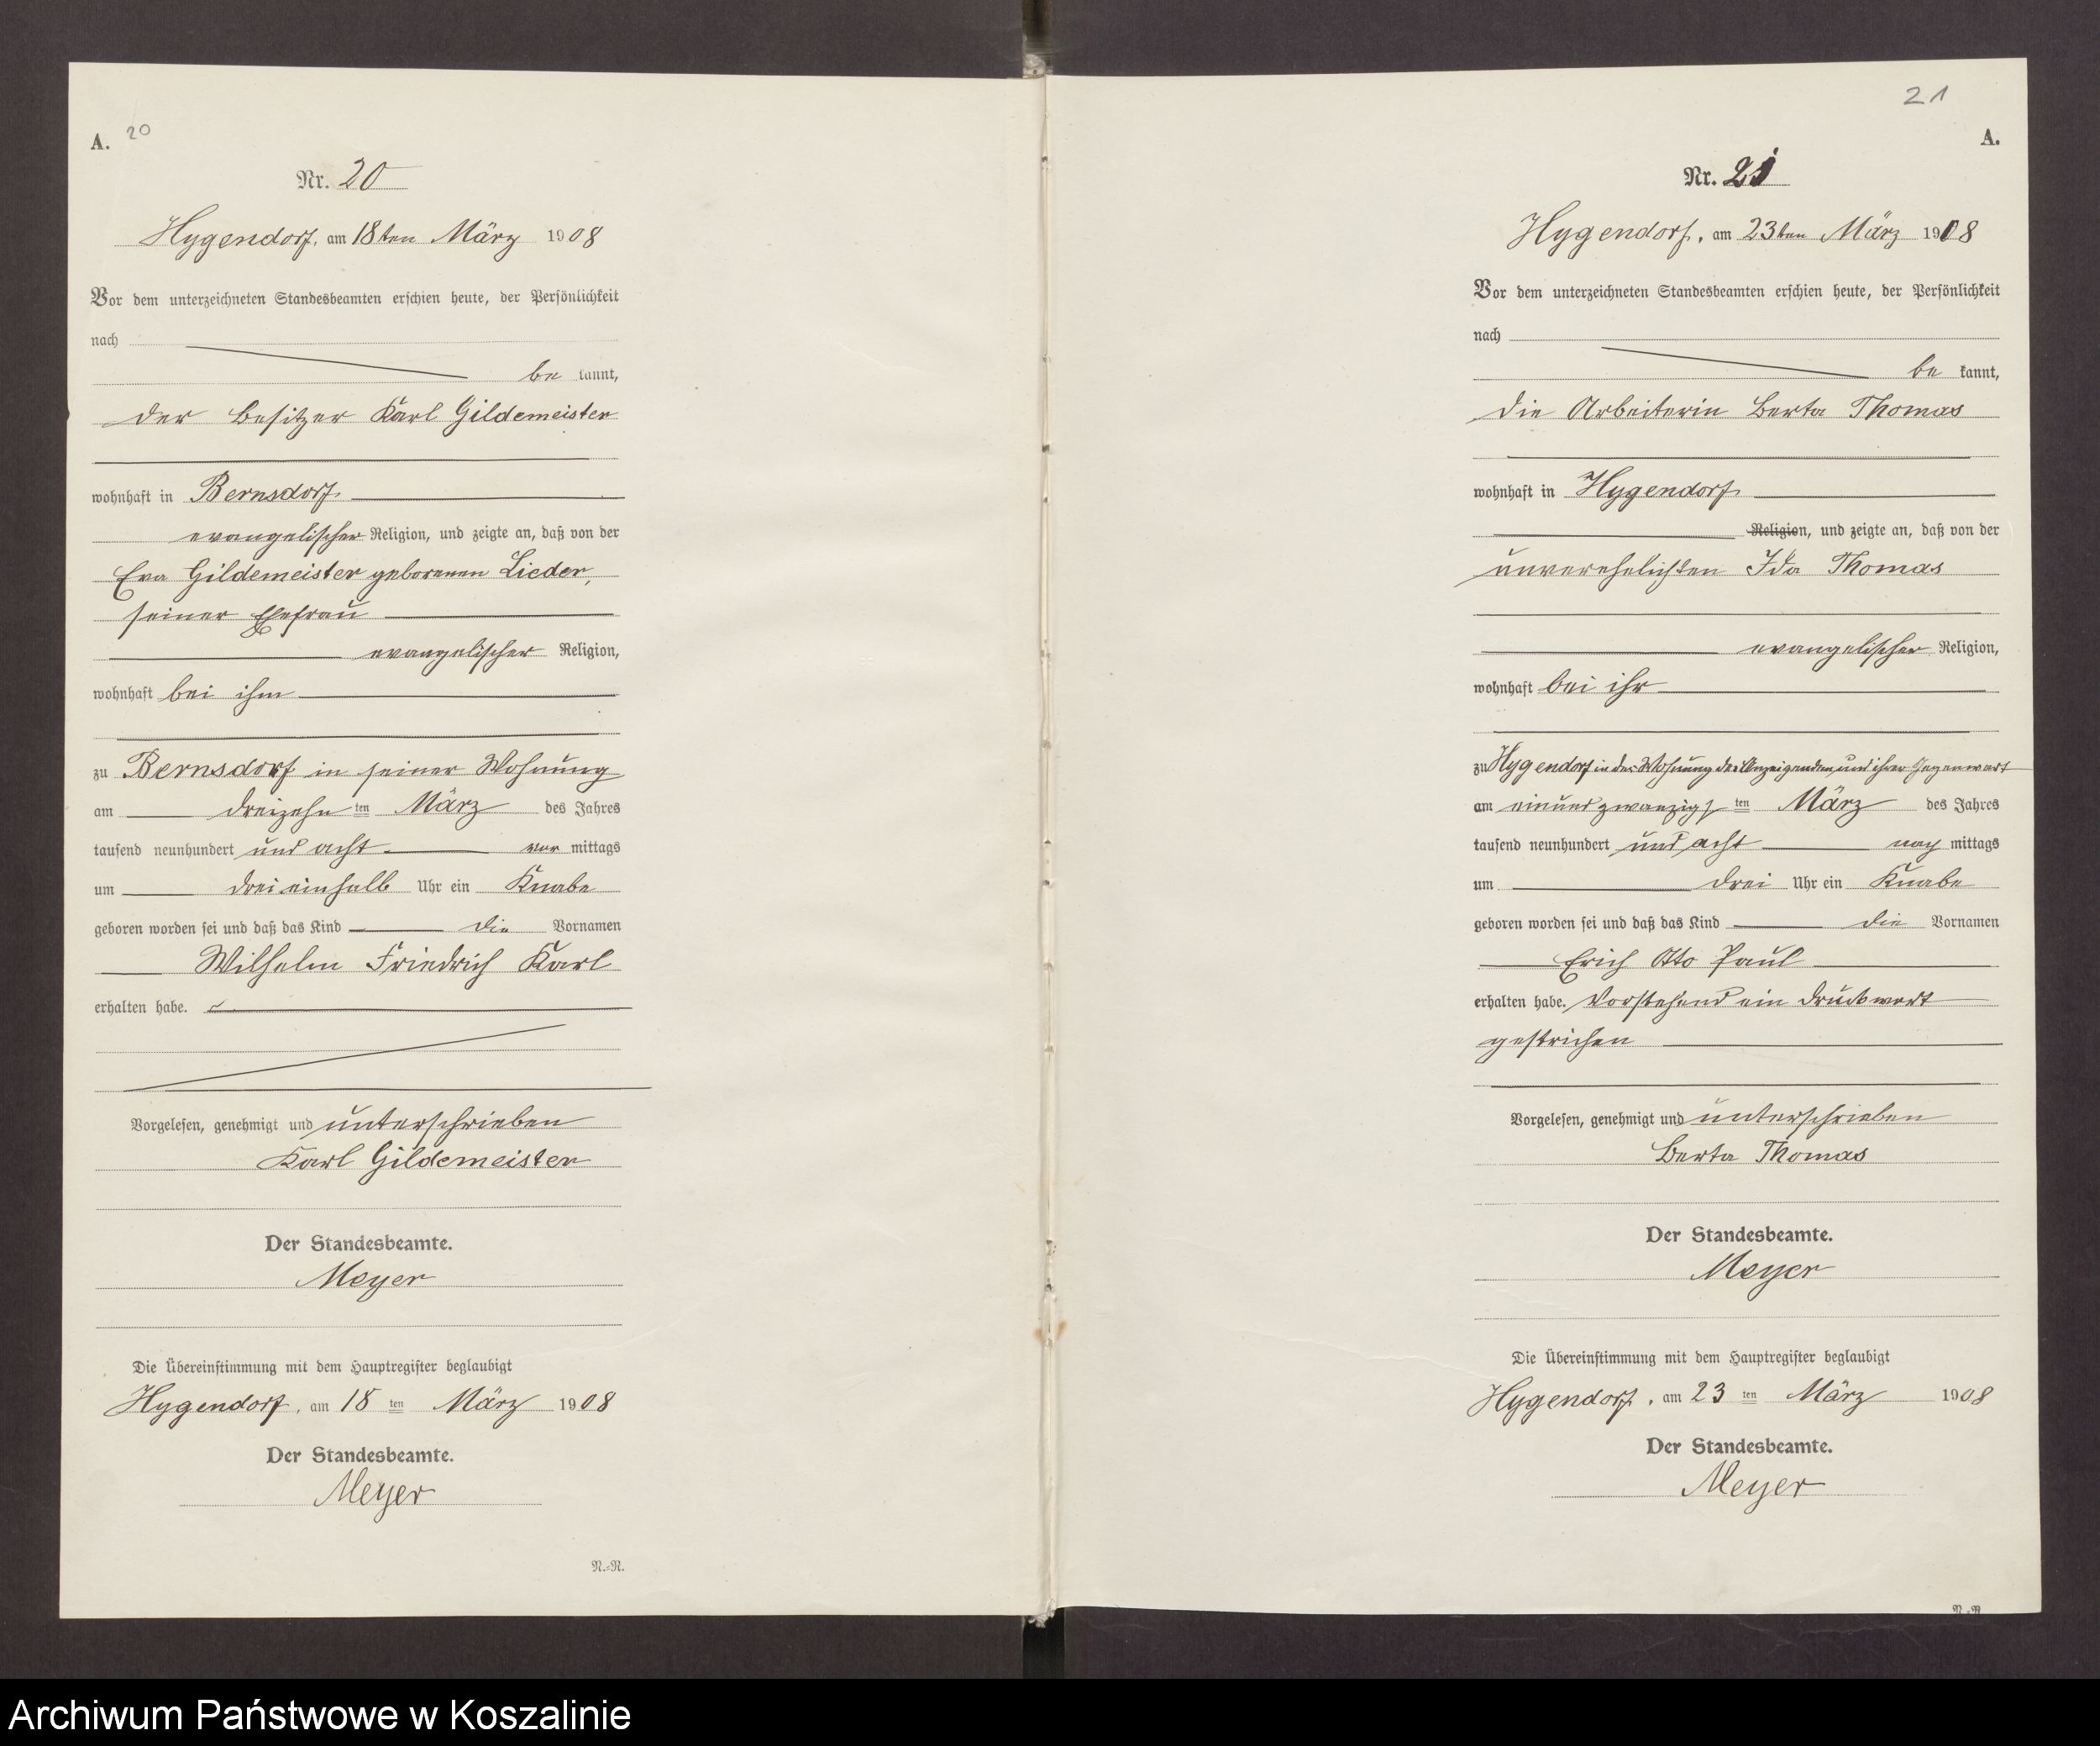 20
A.
Nr. 20
Hygendorf, am 18ten März 1908
Vor dem unterzeichneten Standesbeamten erschien heute, der Persönlichkeit
nach
be kannt,
der Besitzer Karl Gildemeister
wohnhaft in Bernsdorf
evangelischer Religion, und zeigte an, daß von der
Eva Gildemeister geborenen Lieder,
seiner Ehefrau
evangelischer Religion,
wohnhaft bei ihm
zu Bernsdorf in seiner Wohnung
am dreizehn ten März des Jahres
tausend neunhundert und acht vor mittags
um drei einhalb Uhr ein Knabe
geboren worden sei und daß das Kind die Vornamen
Wilhelm Friedrich Karl
erhalten habe.
Vorgelesen, genehmigt und unterschrieben
Karl Gildemeister
Der Standesbeamte.
Meyer
Die Übereinstimmung mit dem Hauptregister beglaubigt
Hygendorf, am 18 ten März 1908
Der Standesbeamte.
Meyer
N.-N.
21
A.
Nr. 21
Hygendorf, am 23ten März 1908
Vor dem unterzeichneten Standesbeamten erschien heute, der Persönlichkeit
nach
be kannt,
die Arbeiterin Berta Thomas
wohnhaft in Hygendorf
Religion, und zeigte an, daß von der
unverehelichten Ida Thomas
evangelischer Religion,
wohnhaft bei ihr
zu Hygendorf in der Wohnung der Anzeigenden und ihrer Gegenwart
am einundzwanzigs ten März des Jahres
tausend neunhundert und acht nach mittags
um drei Uhr ein Knabe
geboren worden sei und daß das Kind die Vornamen
Erich Otto Paul
erhalten habe. Vorstehend ein Druckwort
gestrichen
Vorgelesen, genehmigt und unterschrieben
Berta Thomas
Der Standesbeamte.
Meyer
Die Übereinstimmung mit dem Hauptregister beglaubigt
Hygendorf, am 23 ten März 1908
Der Standesbeamte.
Meyer
N.-N.
Archiwum Państwowe w Koszalinie